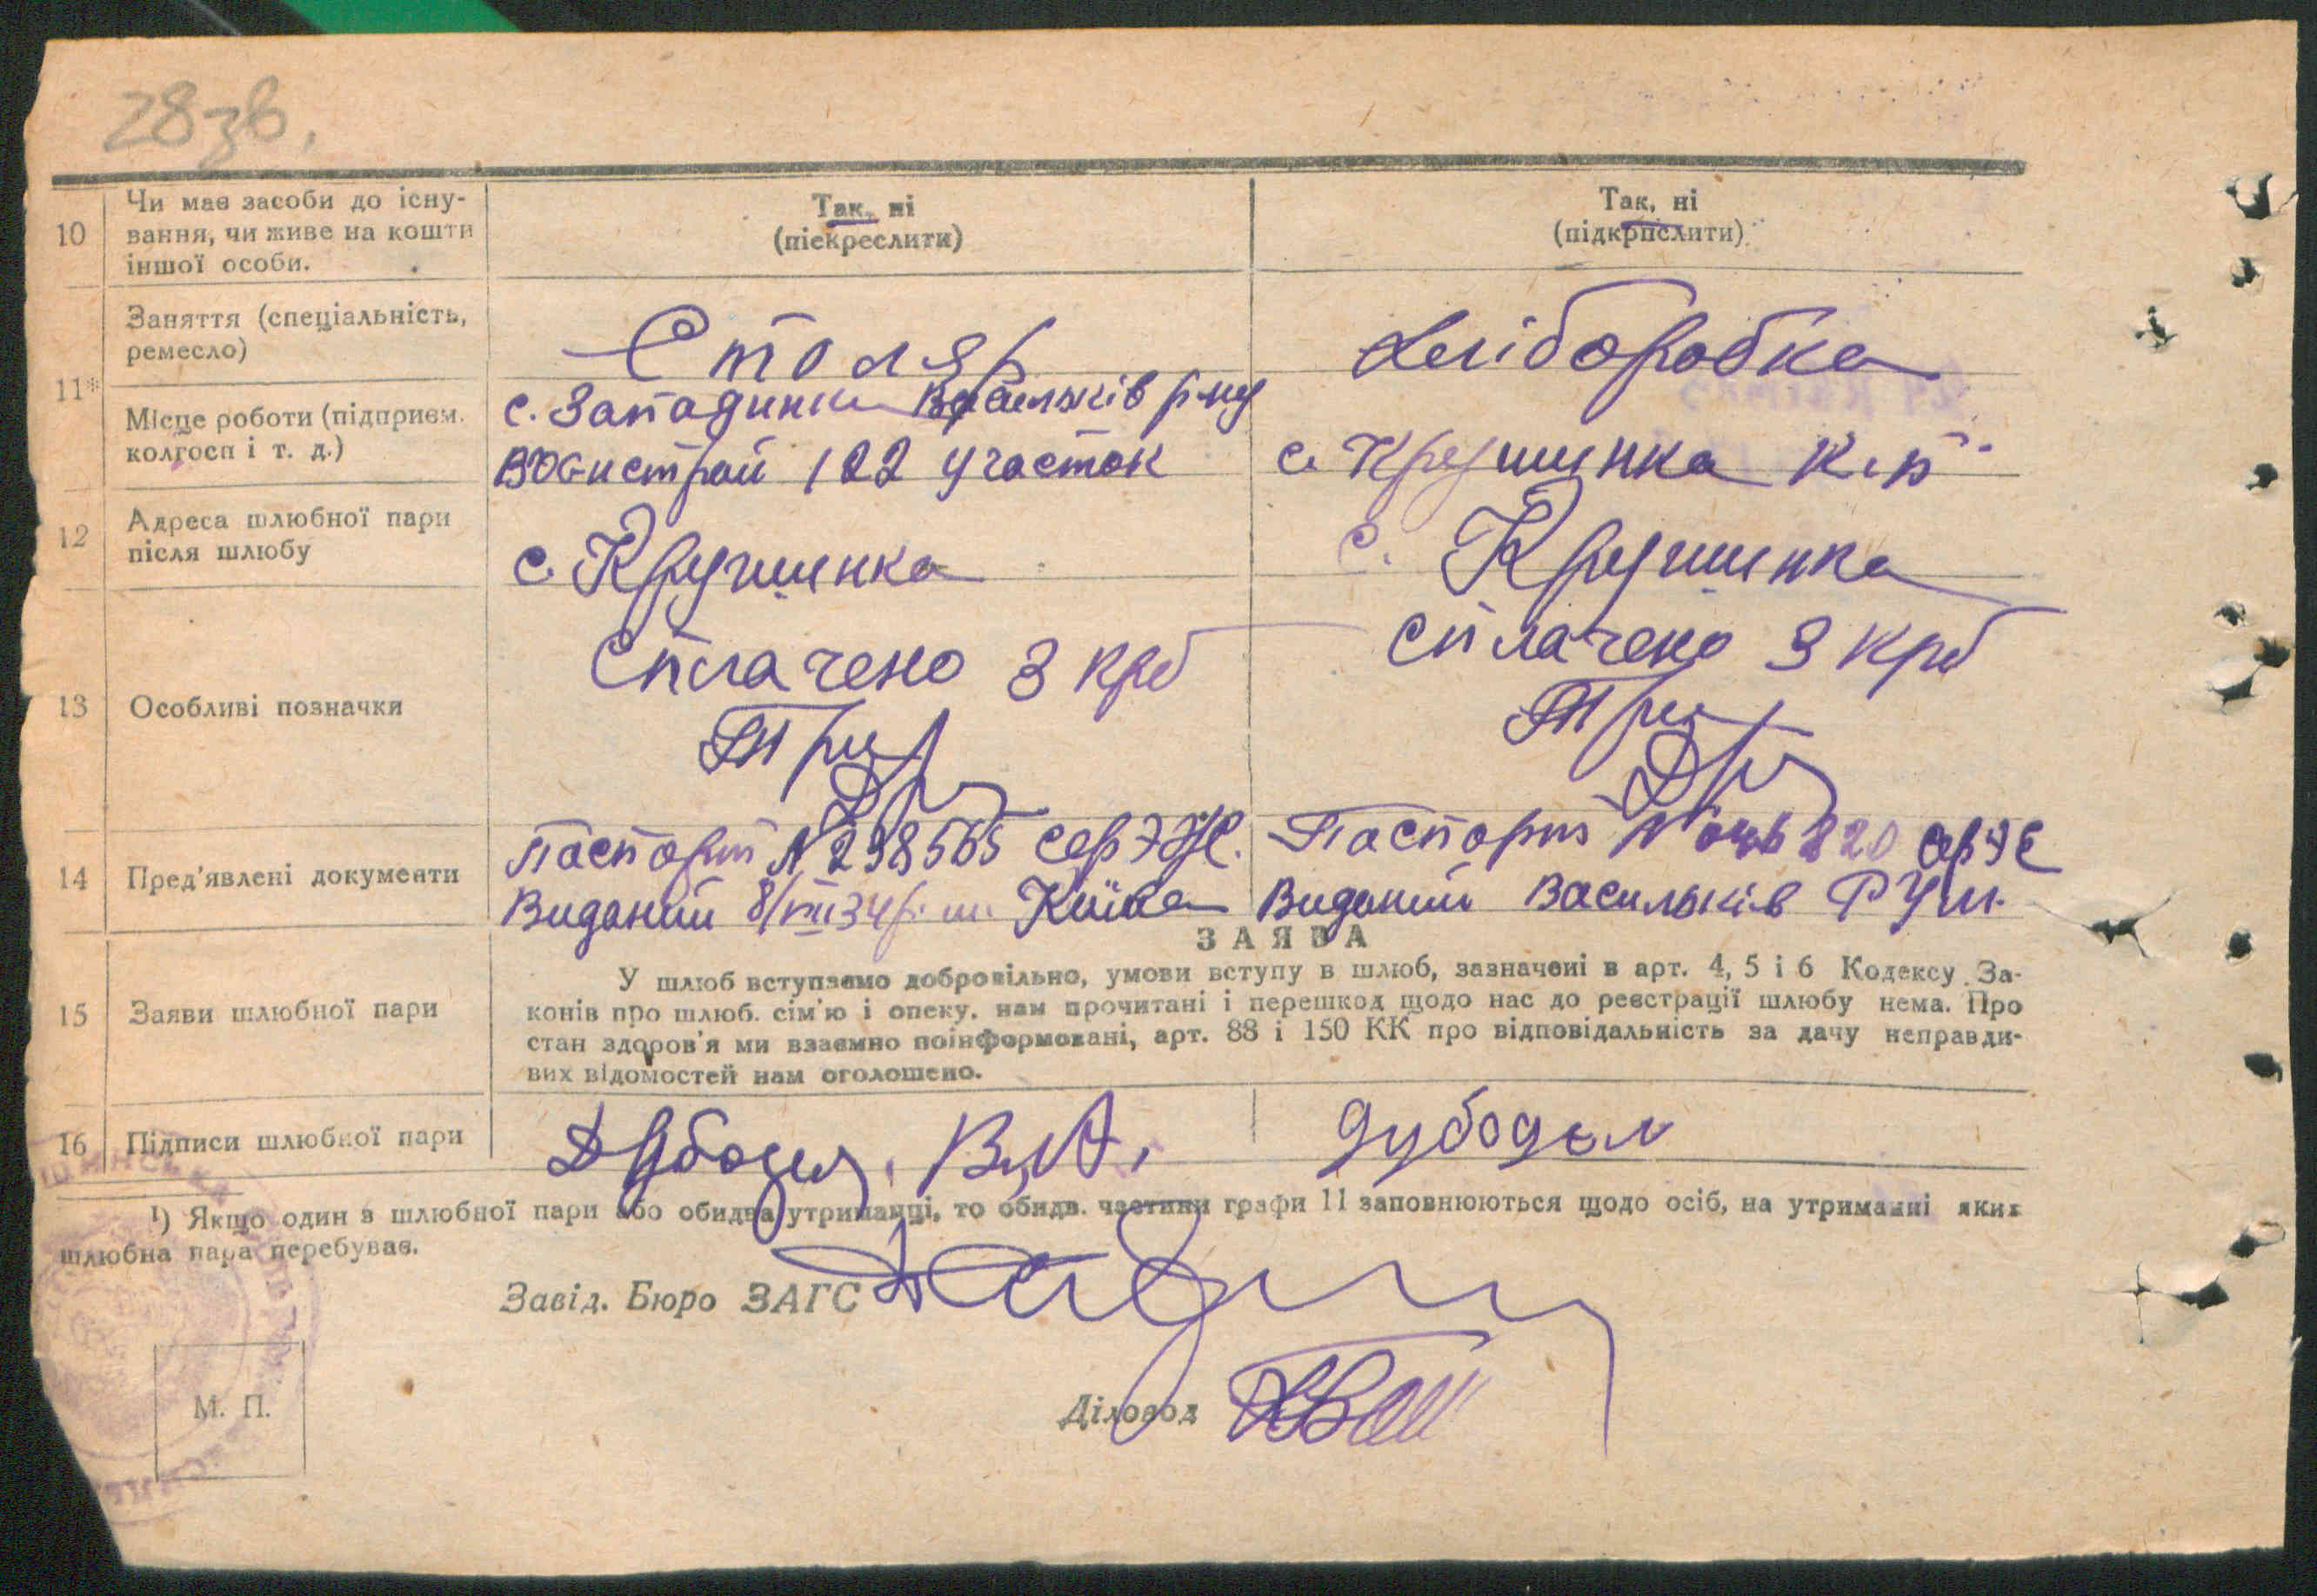 28 зв.
10
Чи має засоби до існу-
вання, чи живе на кошти
іншої особи.
Так, ні
(піекреслити)
Так, ні
(підкрпслити)
11*
Заняття (спеціальність,
ремесло)
Столяр
Хліборобка
Місце роботи (підприєм.
колгосп і т. д.)
с. Западинка Васильків р-ну
122 участок
с. Крушинка к-п
12
Адреса шлюбної пари
після шлюбу
с. Крушинка
с. Крушинка
13
Особливі позначки
Сплачено 3 крб
Три
Сплачено 3 крб
Три
14
Пред'явлені документи
Паспорт № 298565 сер ЭЖ.
Виданий Київа
Паспорт № 820 сер
Виданий Васильків РУМ.
15
Заяви шлюбної пари
ЗАЯВА
У шлюб вступаємо добровільно, умови вступу в шлюб, зазначені в арт. 4, 5 і 6 Кодексу За-
конів про шлюб. сім'ю і опеку. нам прочитані і перешкод щодо нас до реєстрації шлюбу нема. Про
стан здоров'я ми взаємно поінформовані, арт. 88 і 150 КК про відповідальність за дачу неправди-
вих відомостей нам оголошено.
16
Підписи шлюбної пари
Дубодел. В.А.
Дубодел
1) Якщо один з шлюбної пари або обидва утриманці, то обидв. частини графи 11 заповнюються щодо осіб, на утриманні яких
шлюбна пара перебуває.
Завід. Бюро ЗАГС
Діловод
М. П.